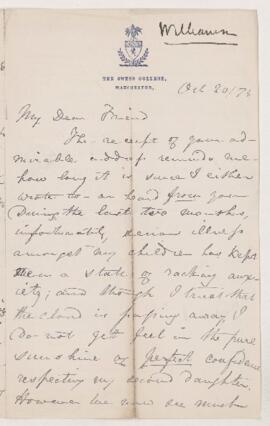 Williamson
THE OWENS COLLEGE,
MANCHESTER,
Oct 20/73
My Dear Friend
The receipt of your ad-
mirable address reminds me
how long it is since I either
wrote to or heard from you
During the last two months,
unfortunately, serious illness
amongst my children has kept
me in a state of racking anx-
iety; and though I trust that
the cloud is passing away, I
do not yet feel in the pure
sunshine of perfect confidence
respecting my second daughter.
However we now are much